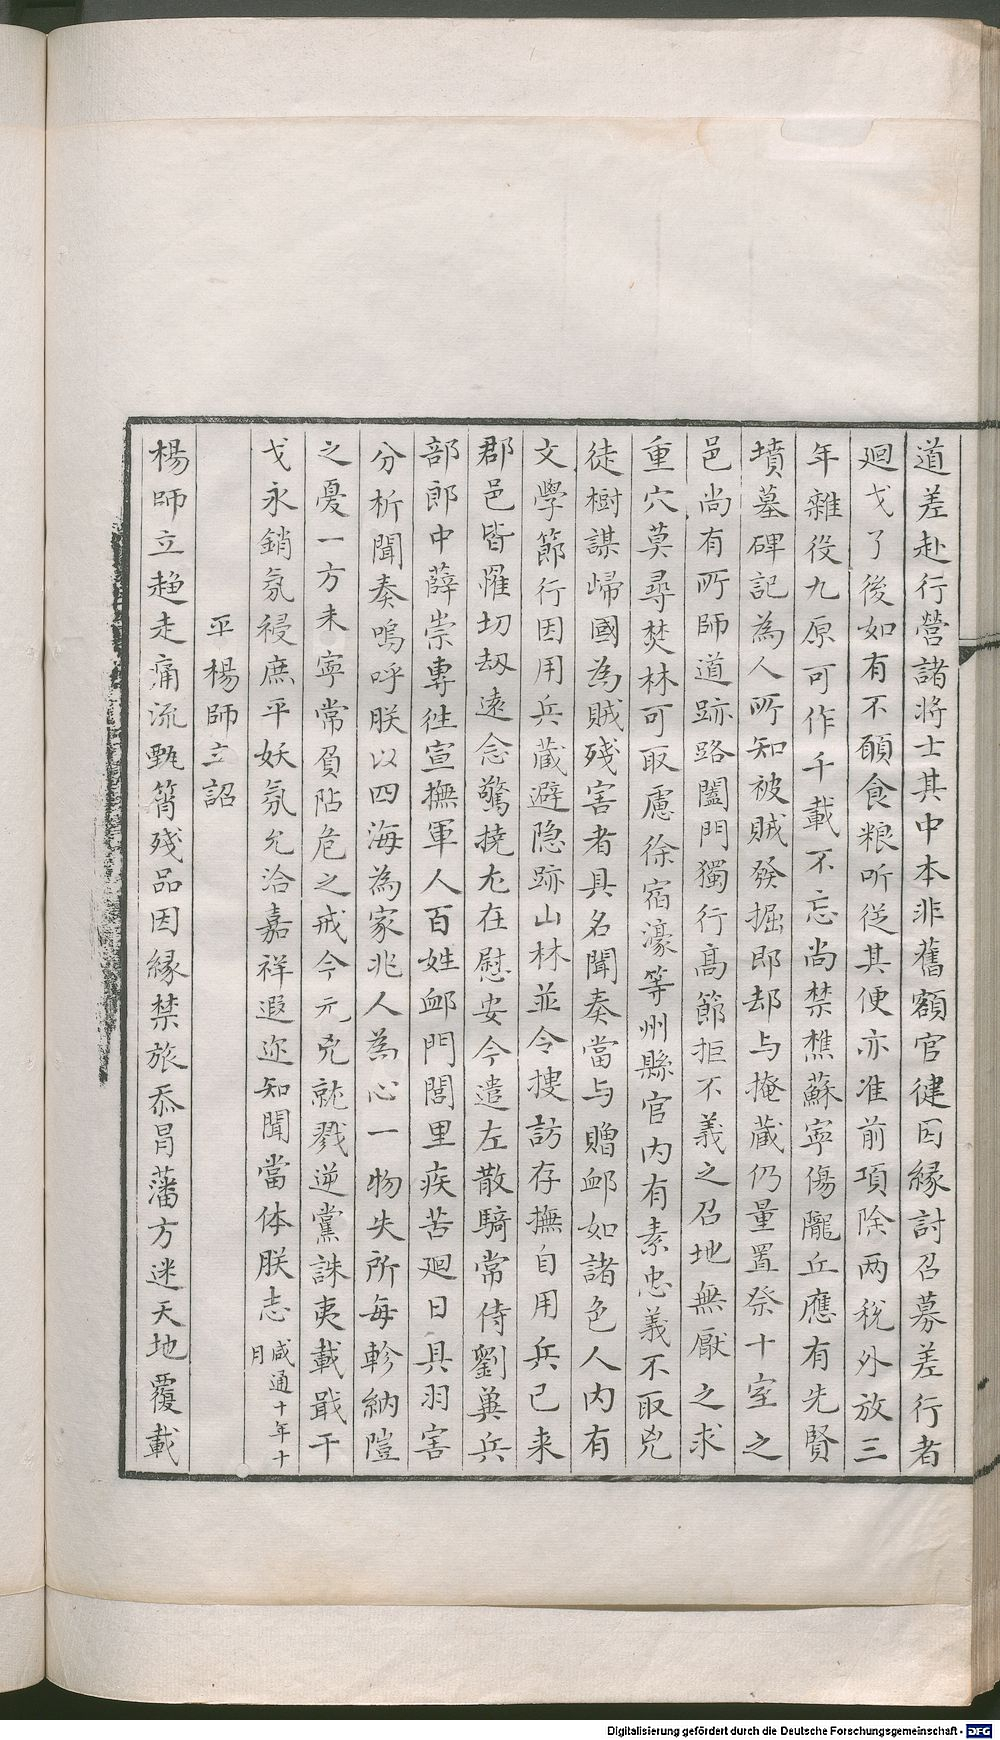 道差赴行營諸將士其中本非舊額官健因縁討召募差行者
廻戈了後如有不願食粮听従其便亦准前項除两稅外放三
年雜役九原可作千載不忘尚禁樵蘇寧傷隴丘應有先賢
墳墓碑記為人所知被賊發掘即却与掩蔵仍量置祭十室之
邑尚有所師道跡路闔門獨行高節拒不義之召地無厭之求
重穴莫尋焚林可取慮徐宿濠等州縣官内有素忠義不取兇
徒樹謀歸國為賊残害者具名聞奏當与贈邺如諸色人内有
文學節行因用兵蔵避隐跡山林並令捜訪存撫自用兵已来
郡邑皆罹切刼遠念驚撓尤在慰安今遣左散騎常侍劉兾兵
部郎中薛崇專徃宣撫軍人百姓邺門閭里疾苦廻日具羽害
分析聞奏嗚呼朕以四海為家兆人為心一物失所每軫納隍
之憂一方未寧常負阽危之戒今元兇就戮逆黨誅夷載戢干
戈永銷氛祲庶平妖氛允洽嘉祥遐迩知聞當体朕志咸通十年十月
平楊師立詔
楊師立趍走痛流甄筲残品因縁禁旅忝冐藩方迷天地覆載
Digitalisierung gefördert durch die Deutsche Forschungsgemeinschaft - DFG